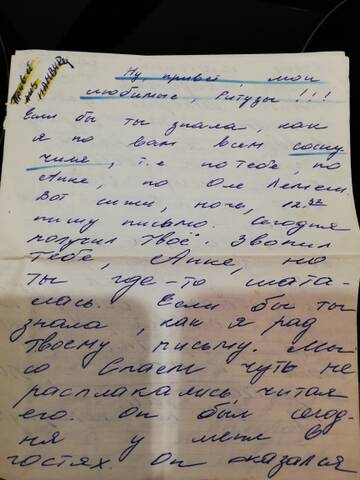 Привет
из
Ну, привет, мои
любимые, Ритузы!!!
Если бы ты знала, как
я по вам всем соску
чился, т.е по тебе, по
Анке, по Оле
Вот сижу, ночь, 12.37
пишу письмо. Сегодня
получил твоё. Звонил
тебе, Анке, но
ты где-то шата-
лась. Если бы ты
знала, как я рад
твоему письму. Мы
со Стасем чуть не
расплакались читая
его. Он был сегод-
ня у меня в
гостях. Он оказался